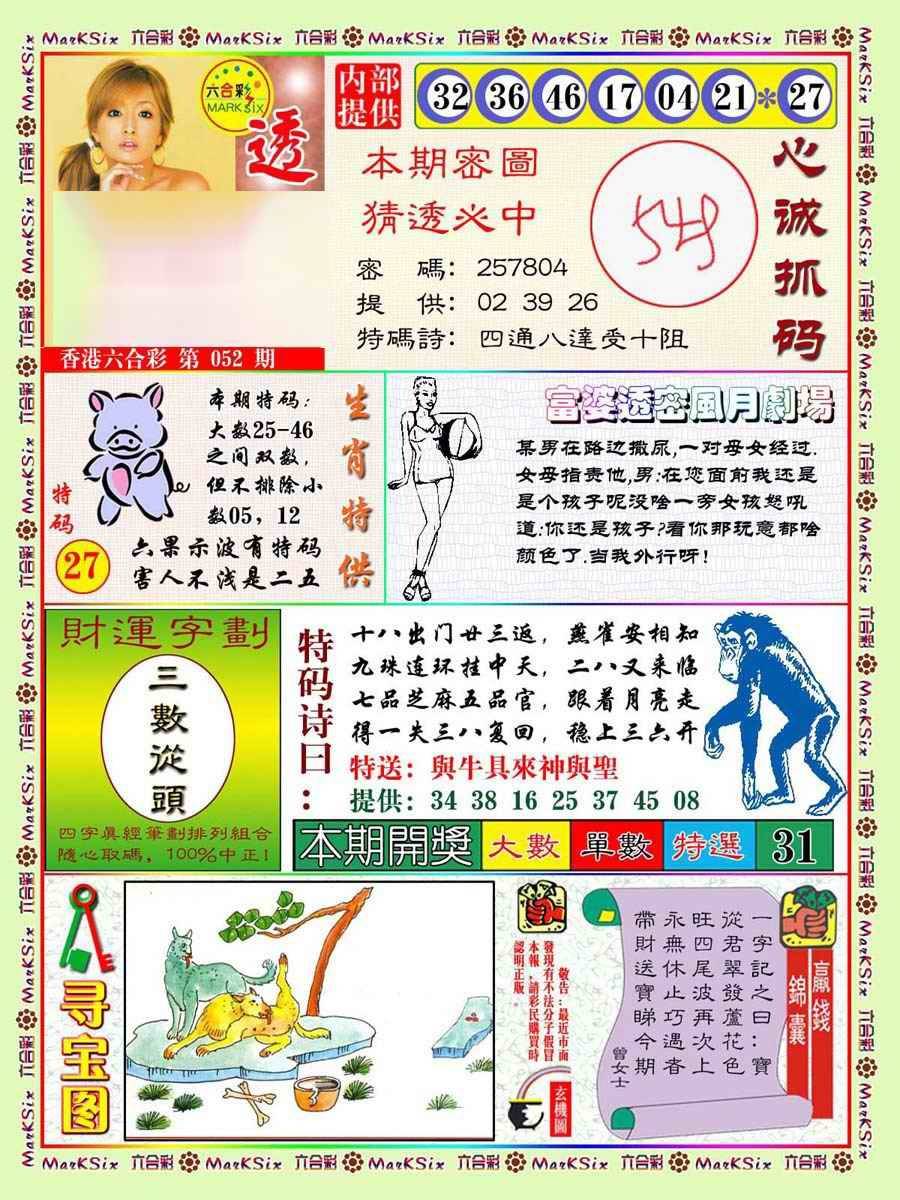 MarKSix 六合彩 MarKSix 六合彩 MarKSix 六合彩 MarKSix 六合彩 MarKSix 六合彩
六合彩
MARK six
透
内部
提供
32 36 46 17 04 21*27
本期密圖
猜透必中
549
密 碼: 257804
提 供: 02 39 26
特碼詩: 四通八達受十阻
心诚抓码
香港六合彩 第 052 期
本期特码:
大数25-46
之间双数,
但不排除小
数05, 12
六果示波有特码
害人不浅是二五
特码
27
生肖特供
富婆透密風月劇場
某男在路边撒尿,一对母女经过.
女母指责他,男:在您面前我还是
是个孩子呢没啥一旁女孩怒吼
道:你还是孩子?看你那玩意都啥
颜色了.当我外行呀!
財運字劃
三數從頭
四字眞經筆劃排列組合
隨心取碼, 100%中正!
特码诗曰:
十八出门廿三返, 燕雀安相知
九珠连环挂中天, 二八又来临
七品芝麻五品官, 跟着月亮走
得一失三八复回, 稳上三六开
特送: 與牛具來神與聖
提供: 34 38 16 25 37 45 08
本期開獎 大數 單數 特選 31
寻宝图
敬告:最近市面
發現有不法分子假冒
本報,請彩民購買時
認明正版。
玄機圖
一字記之曰:寶
從君翠發蘆花色
旺四尾波再次上
永無休止巧遇者
帶財送寶睇今期
曾女士
贏錢
錦囊
MarKSix 六合彩 MarKSix 六合彩 MarKSix 六合彩 MarKSix 六合彩 MarKSix 六合彩